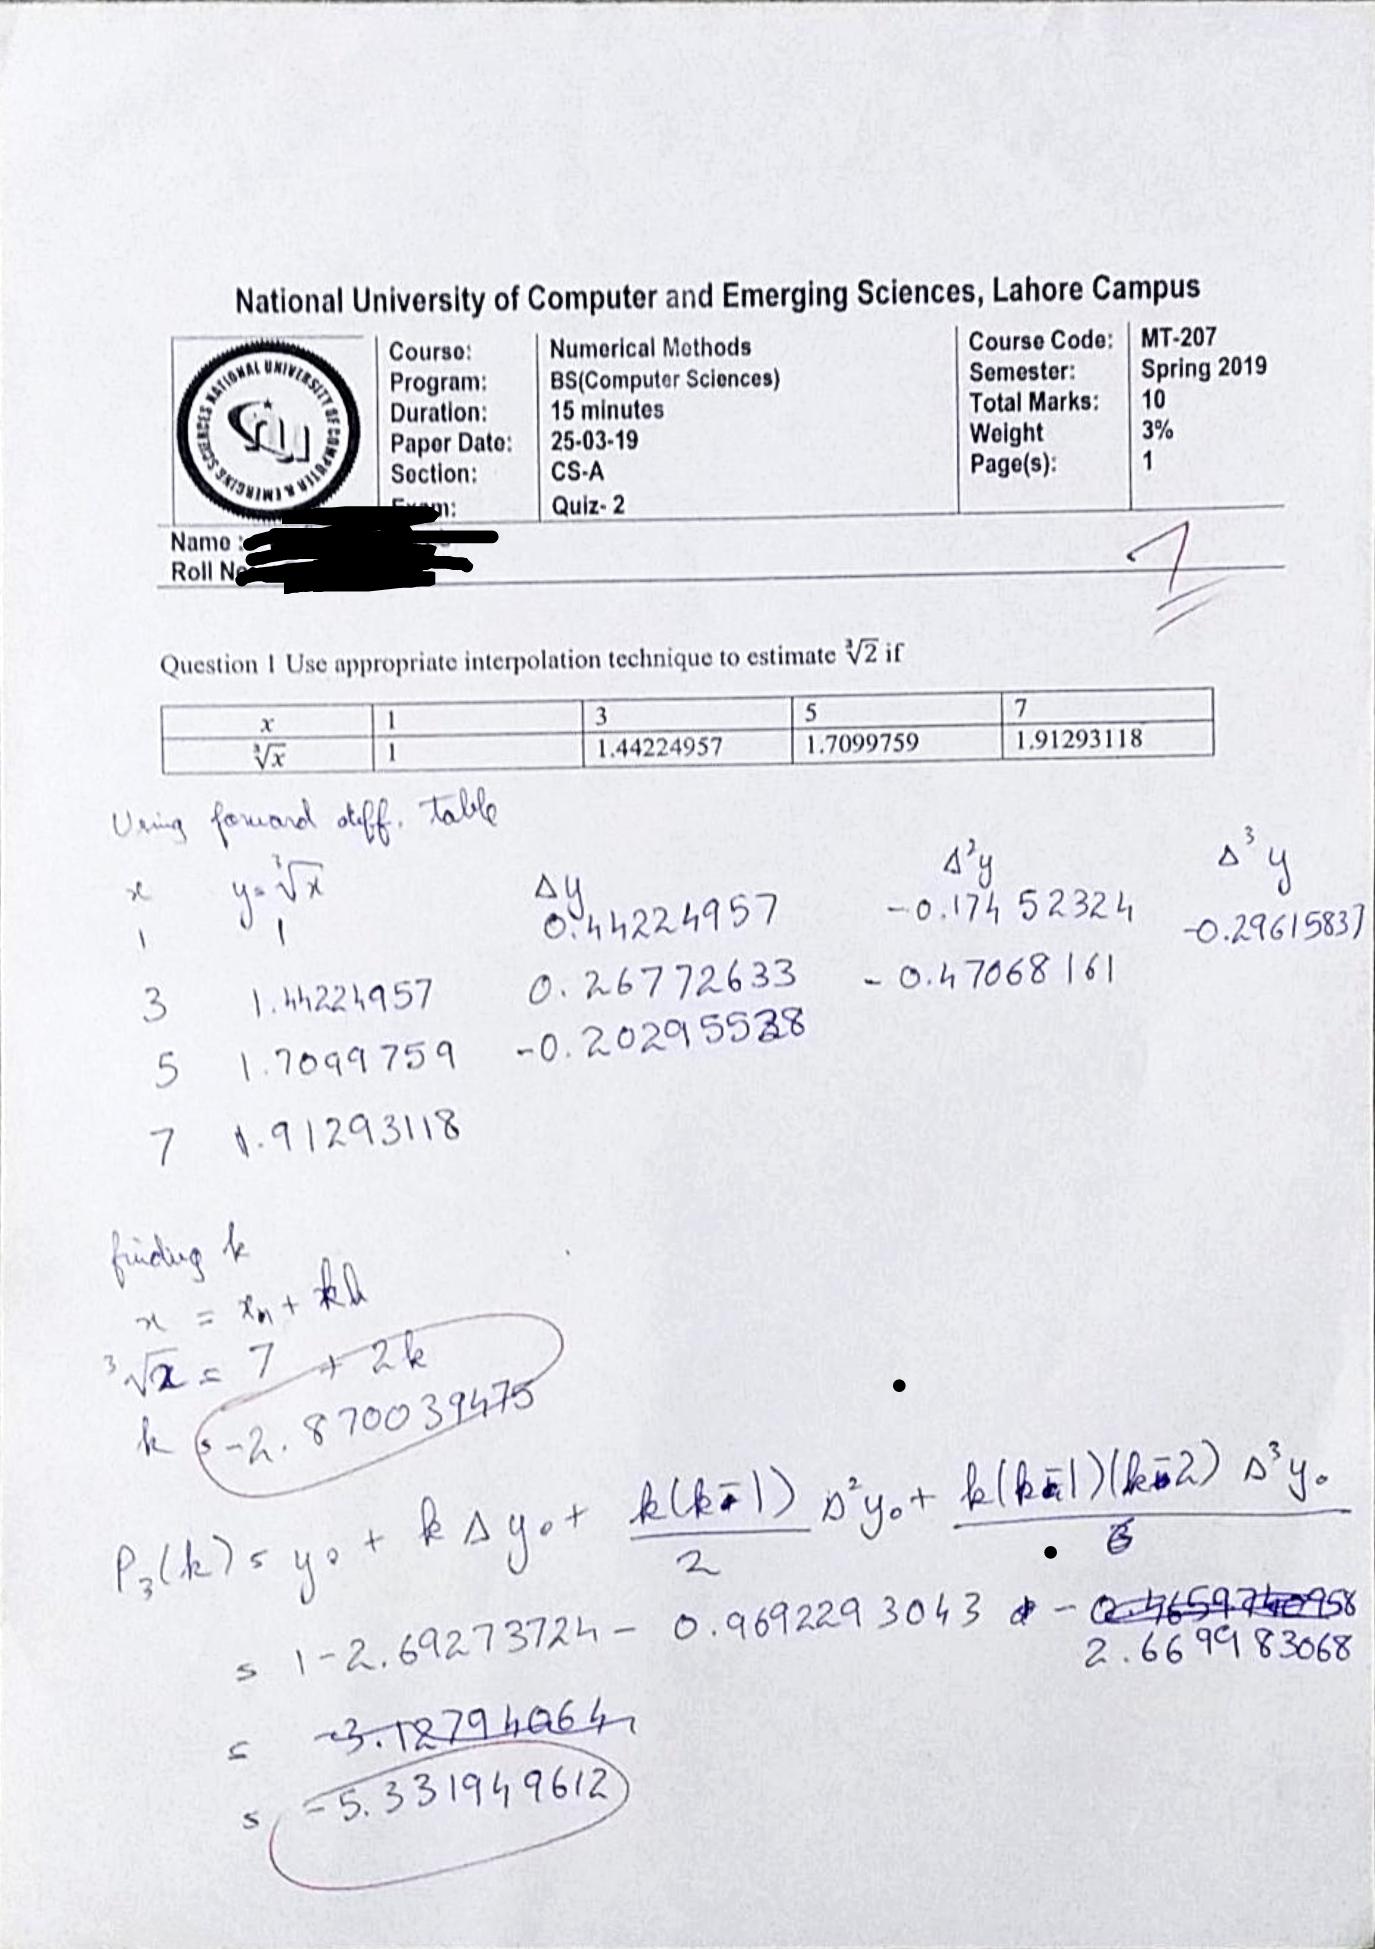 National University of Computer and Emerging Sciences, Lahore Campus
NATIONAL UNIVERSITY OF COMPUTER & EMERGING SCIENCES
Course: Numerical Methods Course Code: MT-207
Program: BS(Computer Sciences) Semester: Spring 2019
Duration: 15 minutes Total Marks: 10
Paper Date: 25-03-19 Weight 3%
Section: CS-A Page(s): 1
Exam: Quiz- 2
Name :
Roll No
1
Question 1 Use appropriate interpolation technique to estimate ∛2 if
x 1 3 5 7
∛x 1 1.44224957 1.7099759 1.91293118
Using forward diff. table
x y=∛x Δy Δ²y Δ³y
1 1 0.44224957 -0.17452324 -0.29615837
3 1.44224957 0.26772633 -0.47068161
5 1.7099759 -0.20295528
7 1.91293118
finding k
x = xn + kh
∛2 = 7 + 2k
k = -2.870039475
P₃(k) = y₀ + kΔy₀ + k(k-1)/2 Δ²y₀ + k(k-1)(k-2)/6 Δ³y₀
= 1-2.69273724 - 0.9692293043 - 0.4659740958
2.669983068
= -3.12794064
= -5.331949612